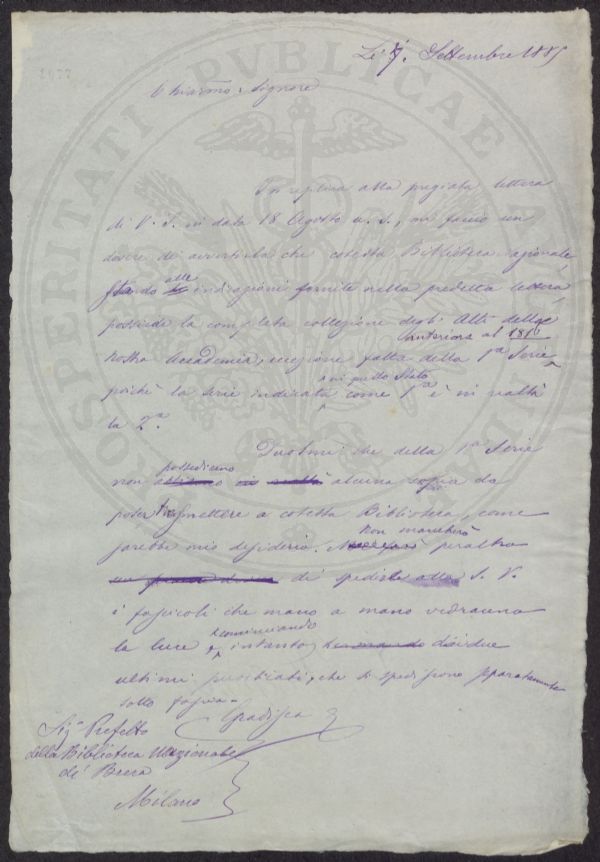 Li 7. Settembre 1885
Chiarmo: Signore
In replica alla pregiata lettera
di V. S. in data 18 Agosto u. s., mi faccio un
dovere di avvertirla che cotesta Biblioteca nazionale
stando alle indicazioni fornite nella predetta lettera,
possiede la completa collezione degli Atti della
anteriore al 1810
nostra Accademia, eccezione fatta della 1a Serie
in quello Stato
poichè la serie indicata come 1a è in realtà
la 2a.
Duolmi che della 1a Serie
possediamo
non alcuna copia da
poter trasmettere a cotesta Biblioteca, come
Non mancherò
sarebbe mio desiderio. peraltro
di spedire alla S. V.
i fascicoli che mano a mano vedranno
cominciando
la luce, intanto dai due
ultimi pubblicati, che si spediscono separatamente
sotto fascia.
Gradisca
Sigr Prefetto
della Biblioteca Nazionale
di Brera
Milano
PROSPERITATI PVBLICAE